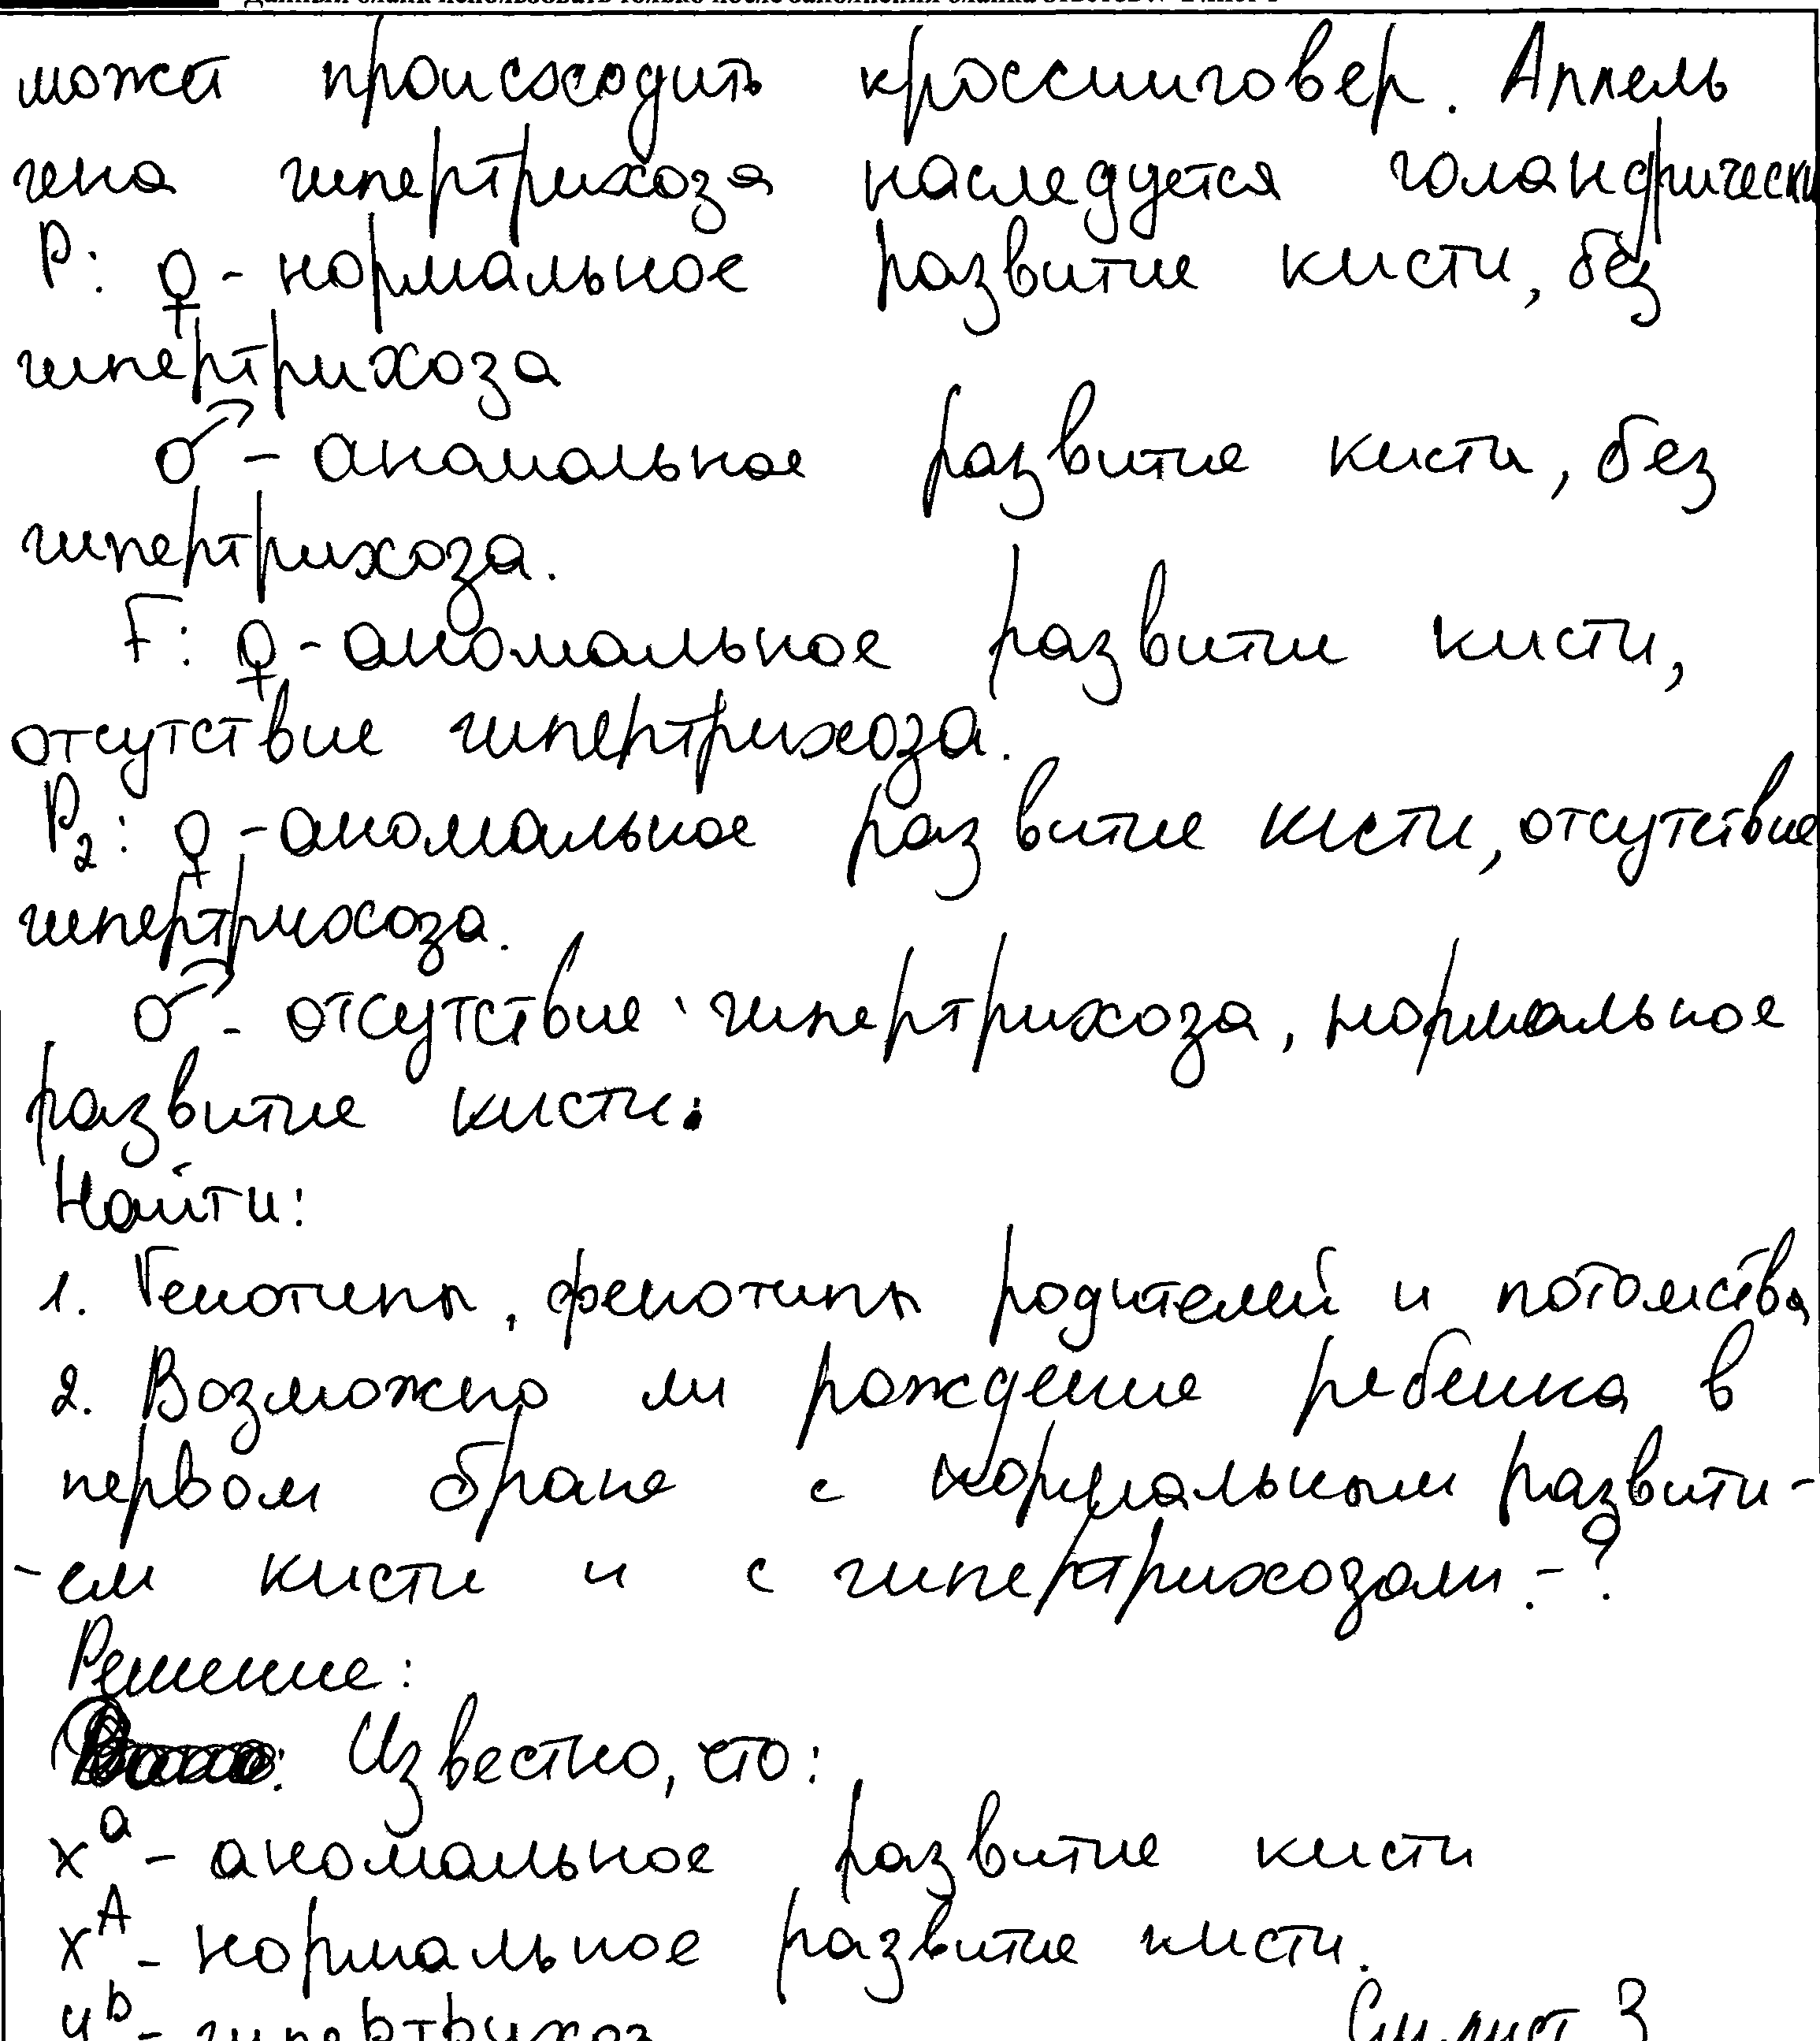 может происходить кроссинговер. Аллель
гена гипертрихоза наследуется голандрически
P: ♀ - нормальное развитие кисти, без
гипертрихоза
♂ - аномальное развитие кисти, без
гипертрихоза.
F: ♀ - аномальное развитие кисти,
отсутствие гипертрихоза.
P₂: ♀ - аномальное развитие кисти, отсутствие
гипертрихоза.
♂ - отсутствие гипертрихоза, нормальное
развитие кисти.
Найти:
1. Генотипы, фенотипы родителей и потомства
2. Возможно ли рождение ребенка в
первом браке с нормальным развити-
-ем кисти и с гипертрихозом. - ?
Решение:
Известно, что:
xᵃ - аномальное развитие кисти
xᴬ - нормальное развитие кисти.
yᵇ - гипертрихоз
См. лист 3